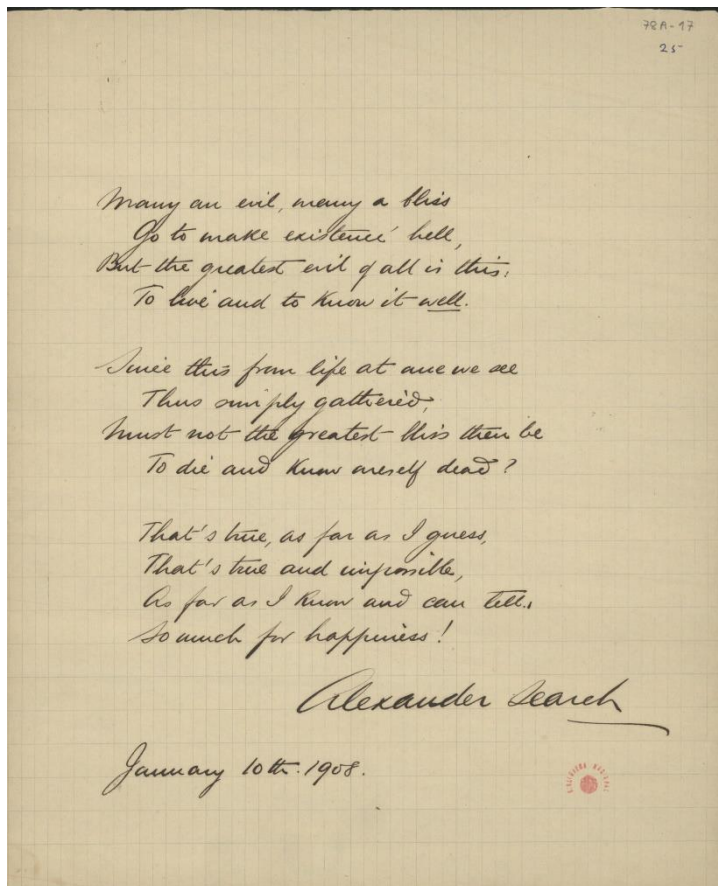 78A-17
25
Many an evil, many a bliss
Go to make existence hell,
But the greatest evil of all is this:
To live and to know it well.
Since this from life at one we see
Thus simply gathered,
Must not the greatest bliss then be
To die and know oneself dead?
That's true, as far as I guess,
That's true and impossible,
As far as I know and can tell.
So much for happiness!
Alexander Search
January 10th. 1908.